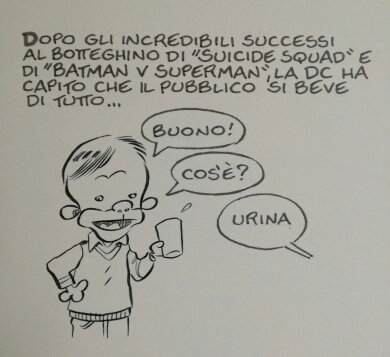 DOPO GLI INCREDIBILI SUCCESSI
AL BOTTEGHINO DI "SUICIDE SQUAD" E
DI "BATMAN V SUPERMAN", LA DC HA
CAPITO CHE IL PUBBLICO SI BEVE
DI TUTTO...
BUONO!
COS'È?
URINA